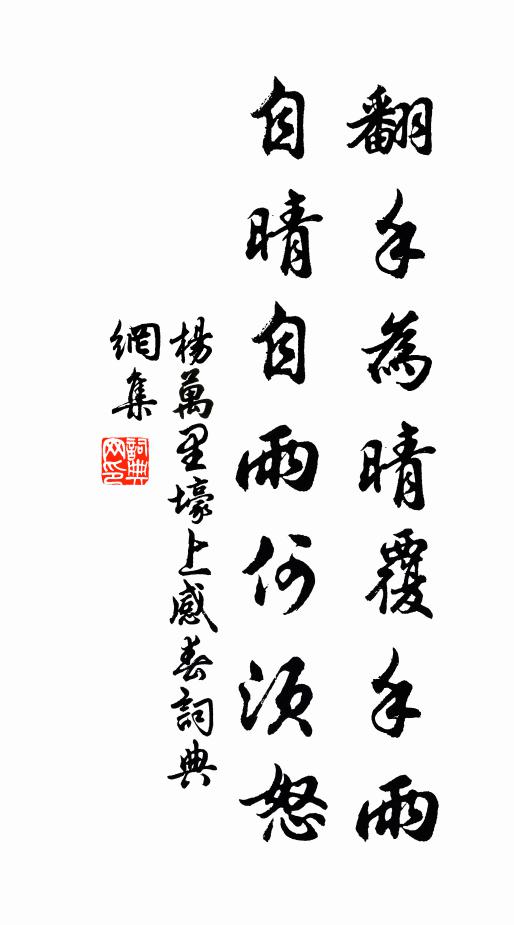 翻手為晴覆手雨
自晴自雨何須怒
楊萬里壕上感春詞典
網集
詞典網印